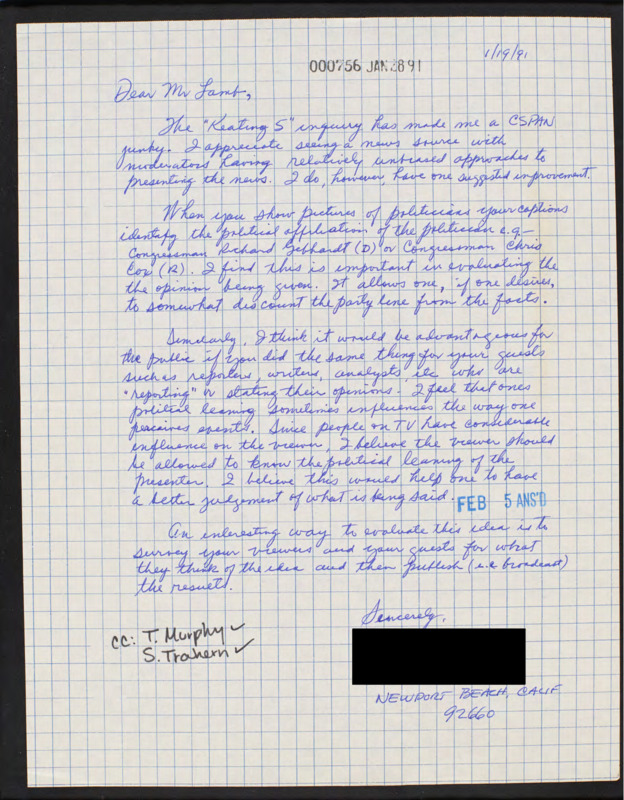 1/19/91
000756 JAN 28 91
Dear Mr Lamb,
The "Keating 5" inquiry has made me a CSPAN
junky. I appreciate seeing a news source with
moderators having relatively unbiased approaches to
presenting the news. I do, however, have one suggested improvement.
When you show pictures of politicians your captions
identify the political affiliation of the politician e.g.—
Congressman Richard Gebhardt (D) or Congressman Chris
Cox (R). I find this is important in evaluating the
the opinion being given. It allows one, if one desires,
to somewhat discount the party line from the facts.
Similarly, I think it would be advantageous for
the public if you did the same thing for your guests
such as reporters, writers, analysts, etc who are
"reporting" or stating their opinions. I feel that ones
political leaning sometimes influences the way one
perceives events. Since people on TV have considerable
influence on the viewer, I believe the viewer should
be allowed to know the political leaning of the
presenter. I believe this would help one to have
a better judgement of what is being said.
FEB 5 ANS'D
An interesting way to evaluate this idea is to
survey your viewers and your guests for what
they think of the idea and then publish (i.e. broadcast)
the results.
Sincerely,
cc: T. Murphy ✓
S. Trahern ✓
NEWPORT BEACH, CALIF
92660